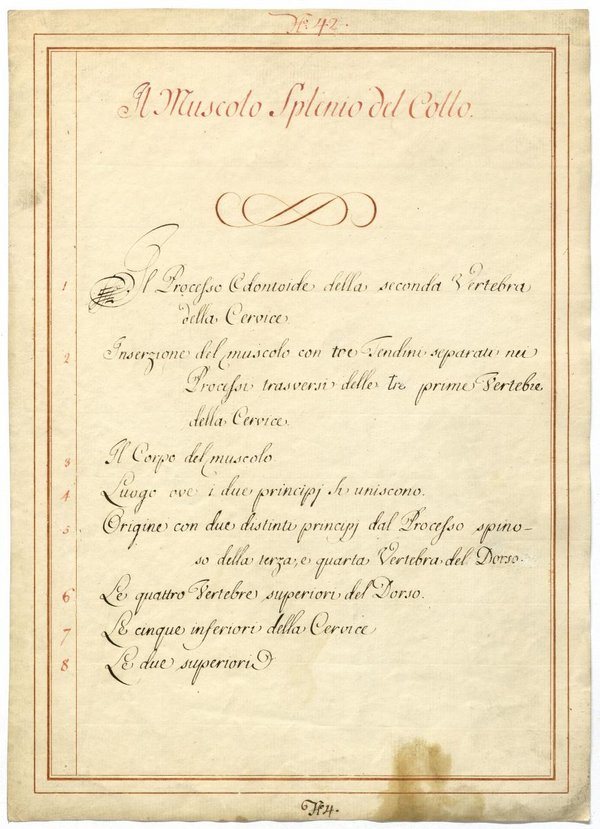 42.
Il Muscolo Splenio del Collo.
1 Il Processo Odontoide della seconda Vertebra
della Cervice
2 Inserzione del muscolo con tre Tendini separati nei
Processi trasversi delle tre prime Vertebre
della Cervice
3 Il Corpo del muscolo.
4 Luogo ove i due principj si uniscono.
5 Origine con due distinti principj dal Processo spino-
so della terza, e quarta Vertebra del Dorso.
6 Le quattro Vertebre superiori del Dorso.
7 Le cinque inferiori della Cervice
8 Le due superiori
4.